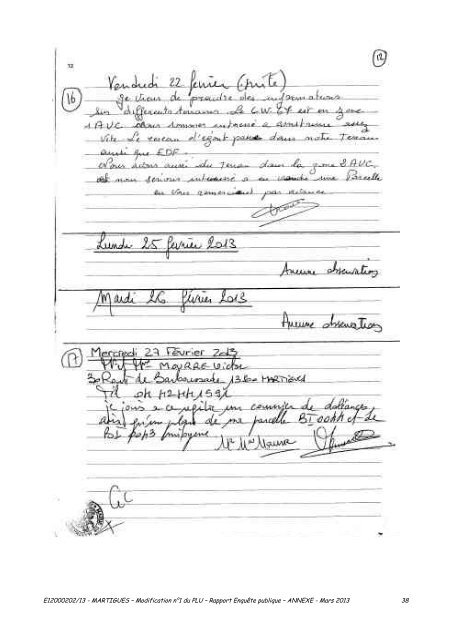 12
12
Vendredi 22 février (suite)
16
Je viens de prendre des informations
sur différents terrains. Le C.W. est en zone
1 AUC à construire assez
vite Le réseau d'égout passe dans notre Terrain
ainsi que EDF.
Nous avons aussi du Terrain dans la zone 2 AUC,
et nous serions intéressé a en vendre une Parcelle
en vous remerciant par avance
Lundi 25 février 2013
Aucune observation
Mardi 26 février 2013
Aucune observation
17
Mercredi 27 Février 2013
Mr Mme MOURRE Victor
30 Route de 13500 MARTIGUES
Tel 04 42 44
je joins a ce registre un courrier de doléances
ainsi qu'un plan de ma parcelle et de
Mr Mme Mourre
E12000202/13 - MARTIGUES – Modification n°1 du PLU – Rapport Enquête publique – ANNEXE - Mars 2013 38